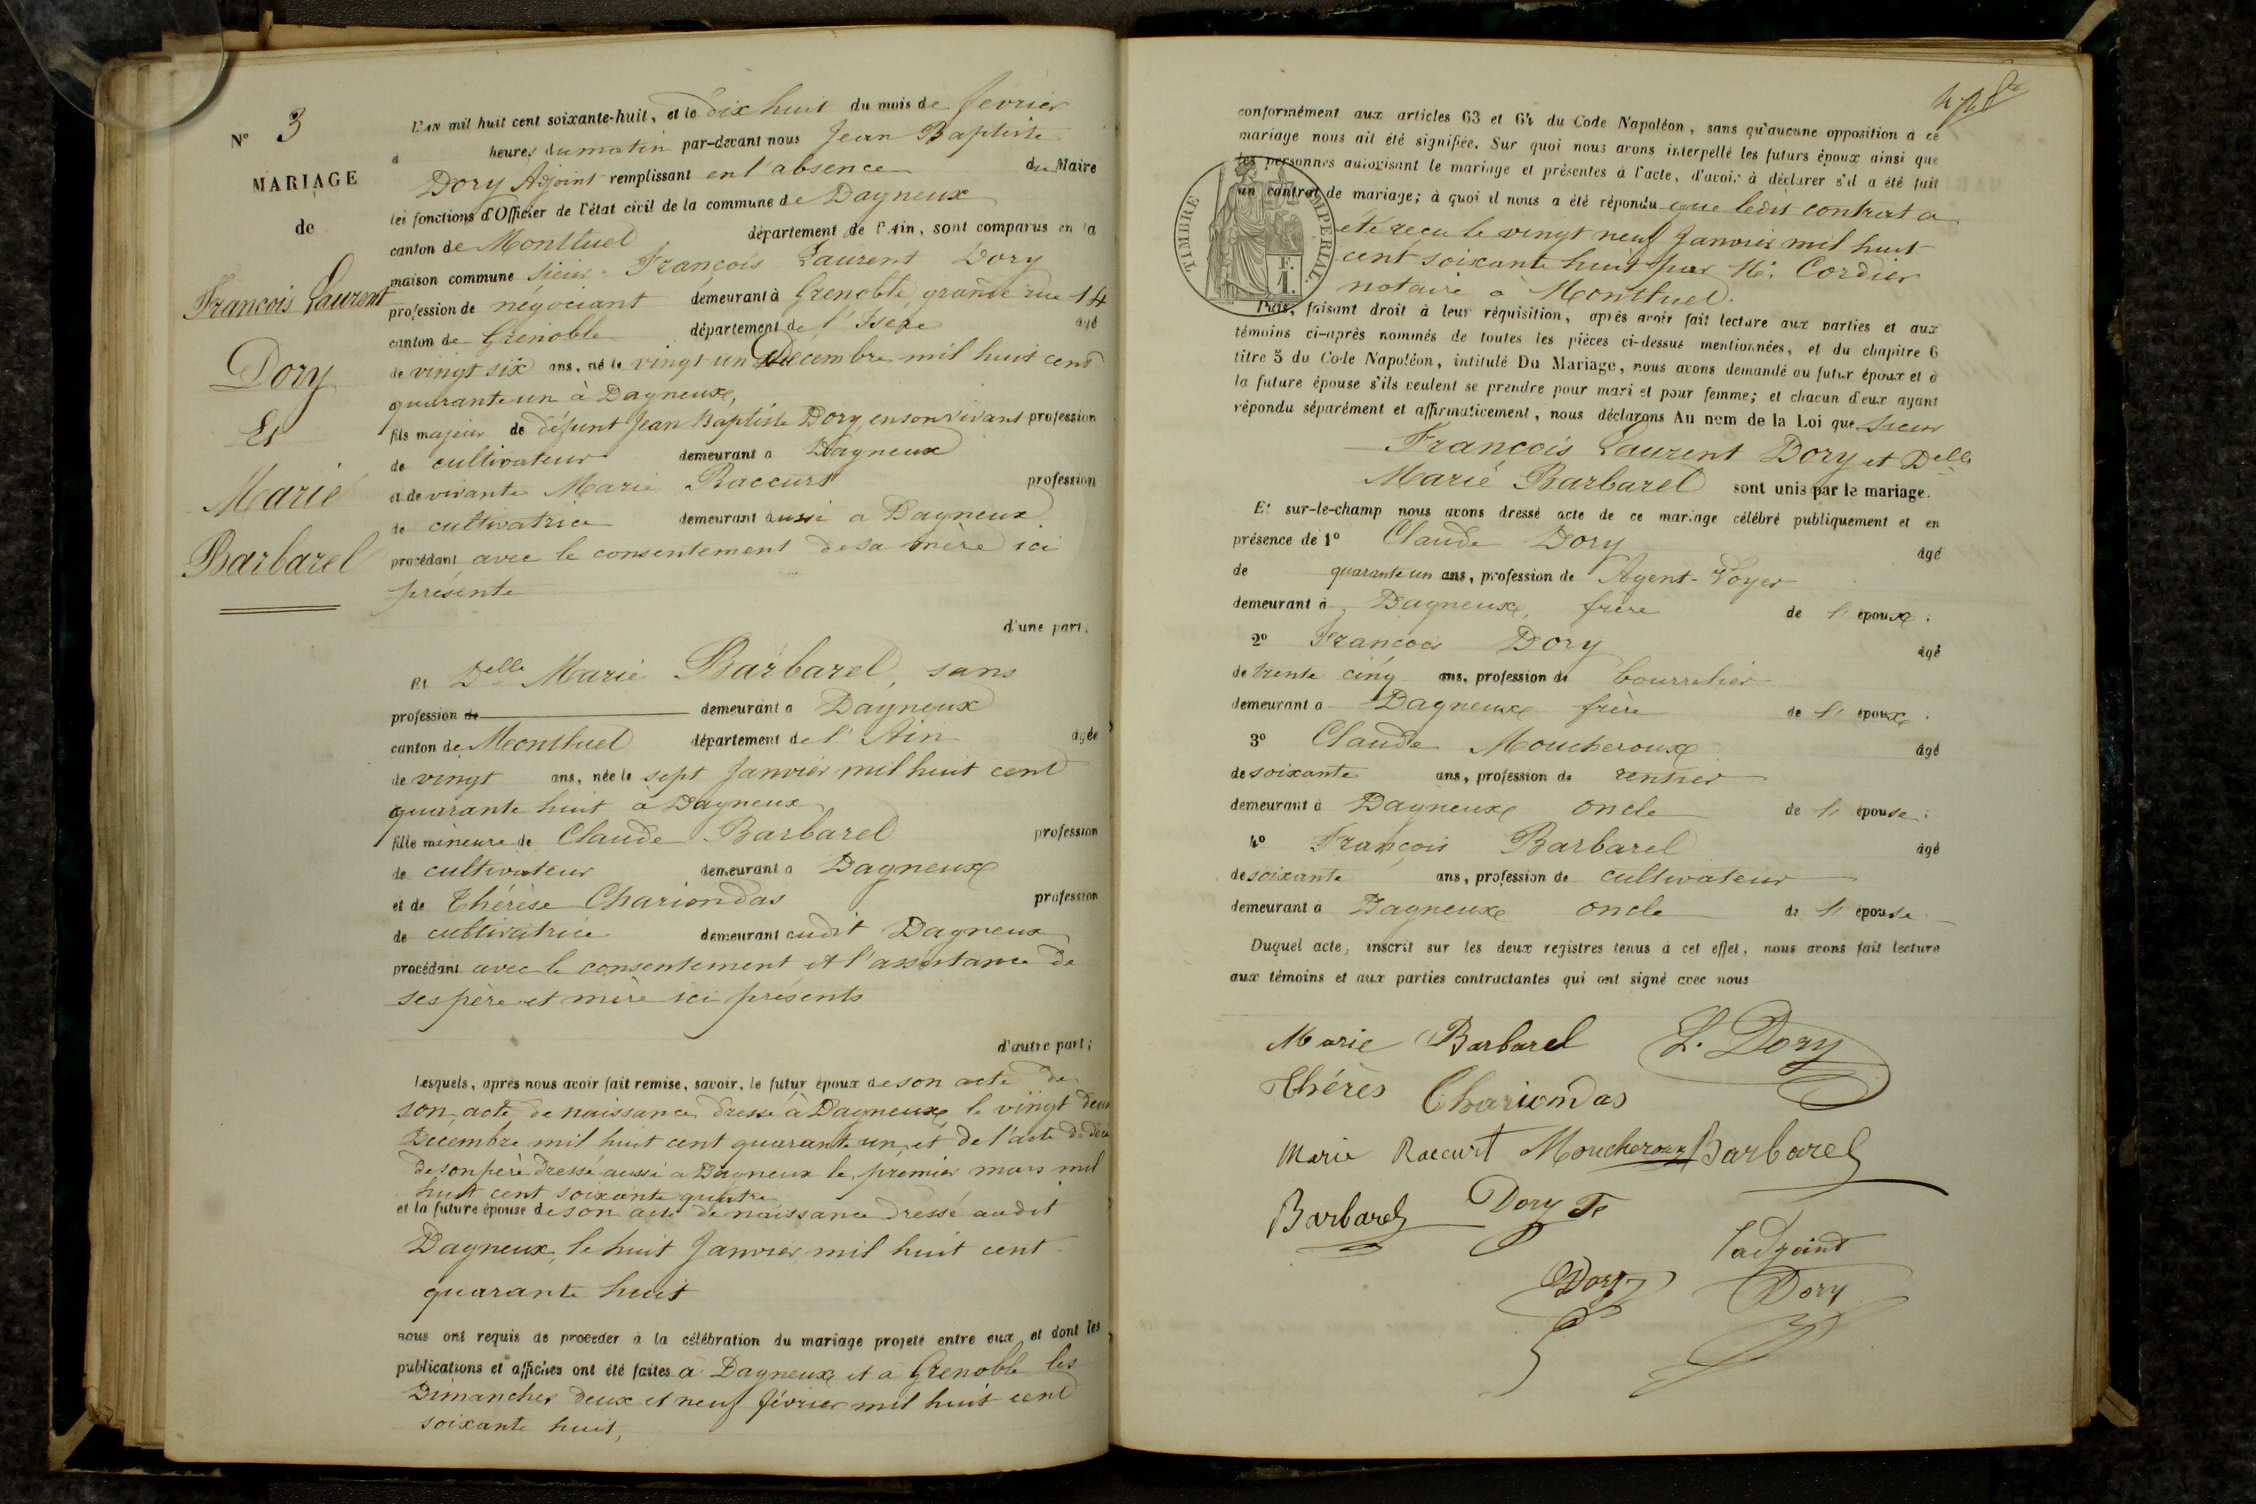 N° 3
MARIAGE
de
François Laurent
Dory
Et
Marie
Barbarel
L'AN mil huit cent soixante-huit, et le dix huit du mois de février
à heures du matin par-devant nous Jean Baptiste
Dory Adjoint remplissant en l'absence du Maire
les fonctions d'Officier de l'état civil de la commune de Dagneux
canton de Montluel département de l'Ain, sont comparus en la
maison commune sieur François Laurent Dory
profession de négociant demeurant à Grenoble grande rue 14
canton de Grenoble département de l'Isère âgé
de vingt six ans, né le vingt un Décembre mil huit cent
quarante un à Dagneux,
fils majeur de défunt Jean Baptiste Dory en son vivant profession
de cultivateur demeurant à Dagneux
et de vivante Marie Raccurt profession
de cultivatrice demeurant aussi a Dagneux
procédant avec le consentement de sa mère ici
présente
d'une part,
Et Delle Marie Barbarel, sans
profession de demeurant à Dagneux
canton de Montluel département de l'Ain âgée
de vingt ans, née le sept Janvier mil huit cent
quarante huit à Dagneux
fille mineure de Claude Barbarel profession
de cultivateur demeurant à Dagneux
et de Thérèse Chariondas profession
de cultivatrice demeurant audit Dagneux
procédant avec le consentement et l'assistance de
ses père et mère ici présents
d'autre part;
Lesquels, après nous avoir fait remise, savoir, le futur époux de son acte de
son acte de naissance dressé à Dagneux le vingt deux
Décembre mil huit cent quarante un, et de l'acte de décès
de son père dressé aussi a Dagneux le premier mars mil
huit cent soixante quatre
et la future épouse de son acte de naissance dressé audit
Dagneux, le huit Janvier mil huit cent
quarante huit
nous ont requis de procéder à la célébration du mariage projeté entre eux et dont les
publications et affiches ont été faites à Dagneux et à Grenoble les
Dimanches deux et neuf février mil huit cent
soixante huit,
conformément aux articles 63 et 64 du Code Napoléon, sans qu'aucune opposition à ce
mariage nous ait été signifiée. Sur quoi nous avons interpellé les futurs époux ainsi que
les personnes autorisant le mariage et présentes à l'acte, d'avoir à déclarer s'il a été fait
un contrat de mariage; à quoi il nous a été répondu que ledit contrat a
été reçu le vingt neuf Janvier mil huit
cent soixante huit par Me. Cordier
notaire à Montluel.
TIMBRE IMPERIAL
F.
1.
Puis, faisant droit à leur réquisition, après avoir fait lecture aux parties et aux
témoins ci-après nommés de toutes les pièces ci-dessus mentionnées, et du chapitre 6
titre 5 du Code Napoléon, intitulé Du Mariage, nous avons demandé au futur époux et à
la future épouse s'ils veulent se prendre pour mari et pour femme; et chacun d'eux ayant
répondu séparément et affirmativement, nous déclarons Au nom de la Loi que Sieur
François Laurent Dory et Delle
Marie Barbarel sont unis par le mariage.
Et sur-le-champ nous avons dressé acte de ce mariage célébré publiquement et en
présence de 1° Claude Dory âgé
de quarante un ans, profession de Agent-Voyer
demeurant à Dagneux, frère de l' époux;
2° François Dory âgé
de trente cinq ans, profession de bourrelier
demeurant à Dagneux frère de l' époux;
3° Claude Moucheroux âgé
de soixante ans, profession de rentier
demeurant à Dagneux oncle de l' épouse;
4° François Barbarel âgé
de soixante ans, profession de cultivateur
demeurant à Dagneux oncle de l' épouse.
Duquel acte, inscrit sur les deux registres tenus à cet effet, nous avons fait lecture
aux témoins et aux parties contractantes qui ont signé avec nous
Marie Barbarel L. Dory
Thérès Chariondas
Marie Raccurt Moucheroux Barbarel
Barbarel Dory F.
l'adjoint
Dory Dory